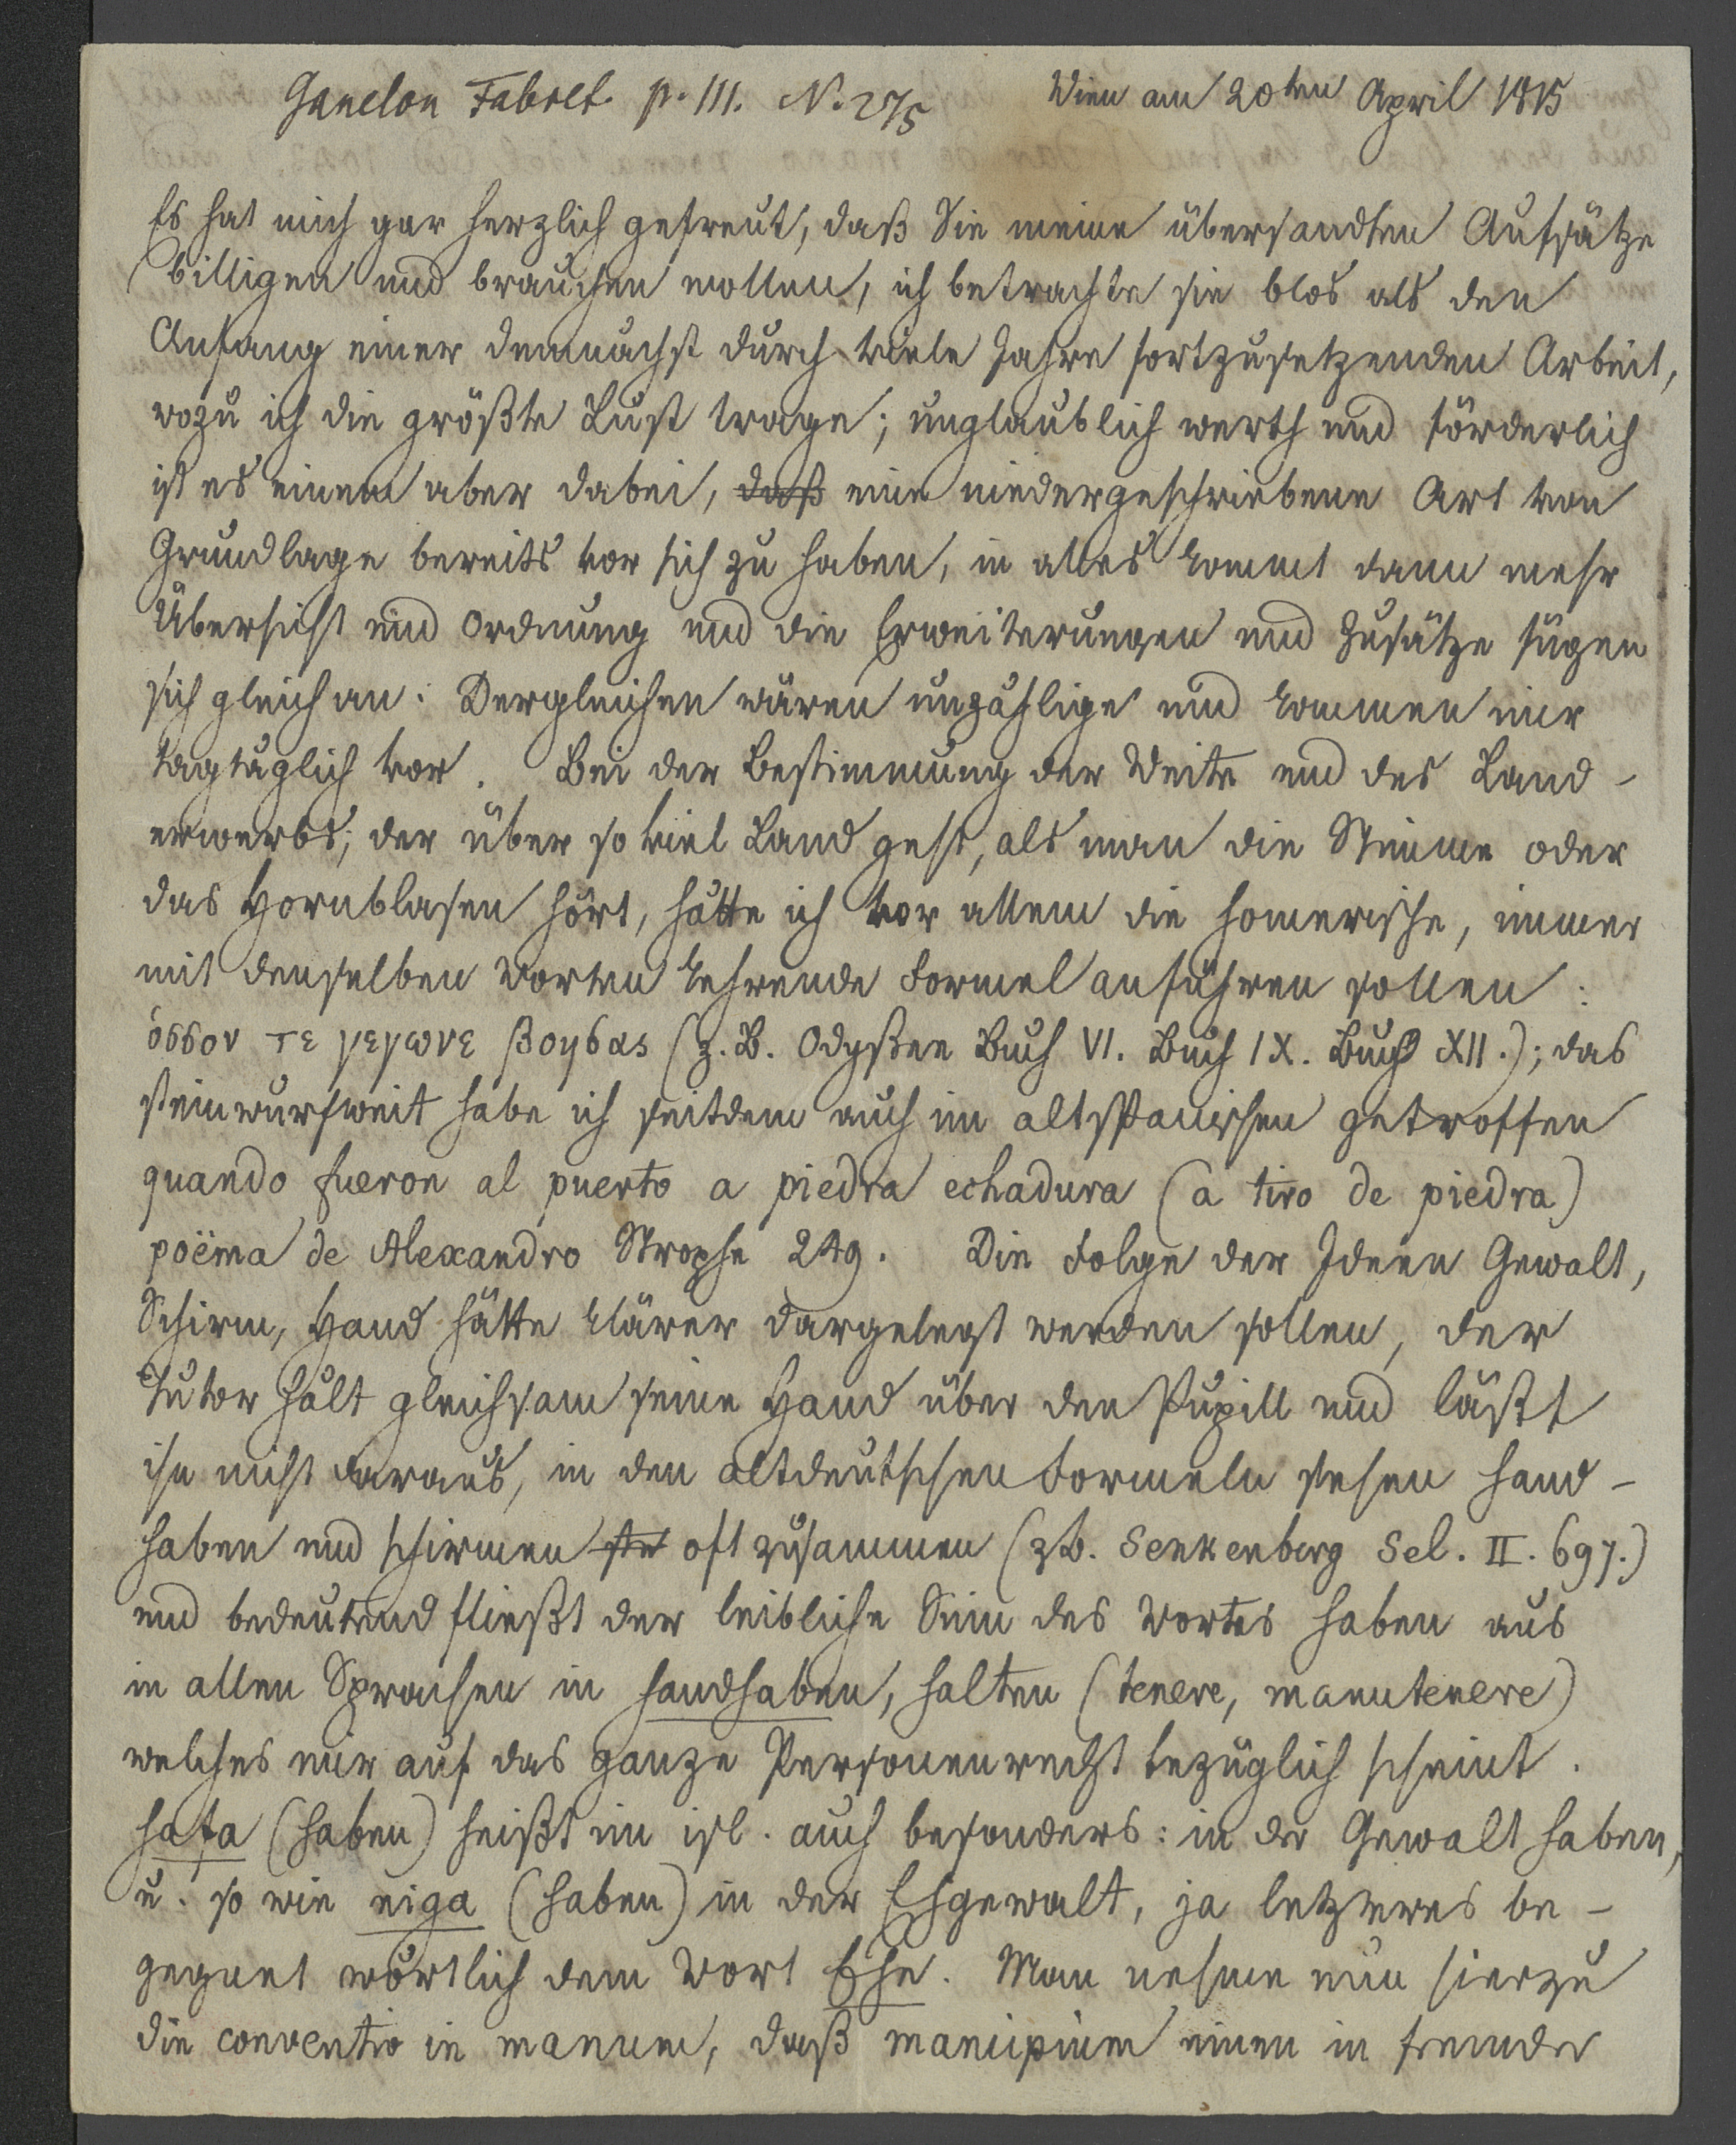 Ganelon Fabret. p. 111. N. 275 Wien am 20ten April 1815
Es hat mich gar herzlich gefreut, daß Sie meine übersandten Aufsätze
billigen und brauchen wollen, ich betrachte sie blos als den
Anfang einer demnächst durch viele Jahre fortzusetzenden Arbeit,
wozu ich die größte Lust trage; unglaublich werth und förderlich
ist es einem aber dabei, daß eine niedergeschriebene Art von
Grundlage bereits vor sich zu haben, in alles kommt dann mehr
Übersicht und Ordnung und die Erweiterungen und Zusätze fügen
sich gleich an. Dergleichen wären unzählige und kommen mir
tagtäglich vor. Bei der Bestimmung der Weite und des Land-
erwerbs, der über so viel Land geht, als man die Stimme oder
das Hornblasen hört, hätte ich vor allem die homerische, immer
mit denselben Worten kehrende Formel anführen sollen:
όσσον τε γεγωνε βοησας (z. B. Odyßee Buch VI. Buch IX. Buch XII.); das
steinwurfweit habe ich seitdem auch im altspanischen getroffen
quando fueron al puerto a piedra echadura (a tiro de piedra)
poëma de Alexandro Strophe 249. Die Folge der Ideen Gewalt,
Schirm, Hand hätte klärer dargelegt werden sollen, der
Tutor hält gleichsam seine Hand über den Pupill und läßt
ihn nicht daraus, in den altdeutschen Formeln stehen hand-
haben und schirmen ste oft zusammen (zb. Senkenberg Sel. II. 697.)
und bedeutend fließt der leibliche Sinn des Wortes haben aus
in allen Sprachen in handhaben, halten (tenere, manutenere)
welches mir auf das ganze Personenrecht bezüglich scheint.
hafa (haben) heißt im isl. auch besonders: in der Gewalt haben,
u. so wie eiga (haben) in der Ehgewalt, ja letzteres be-
gegnet wörtlich dem Wort Ehe. Man nehme nun hierzu
die conventio in manum, daß mancipium einen in fremder